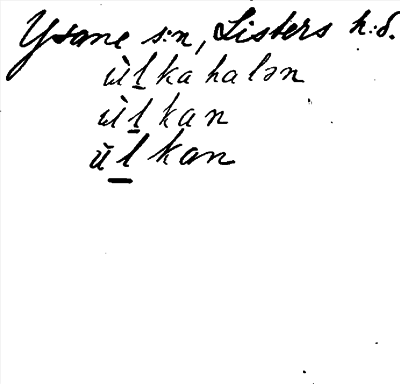 Ysane s:n, Listers h:d.
ùḻkahalən
ùḻkan
ùḻkan